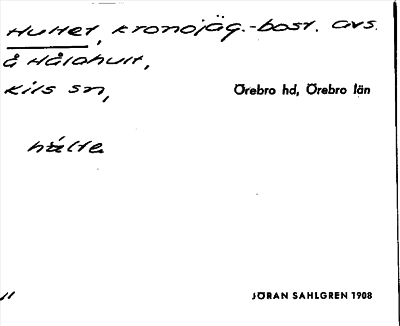 Huttet, kronojäg.-bost. avs.
å Hålahult,
Kils sn,
Örebro hd, Örebro län
hälte
JÖRAN SAHLGREN 1908